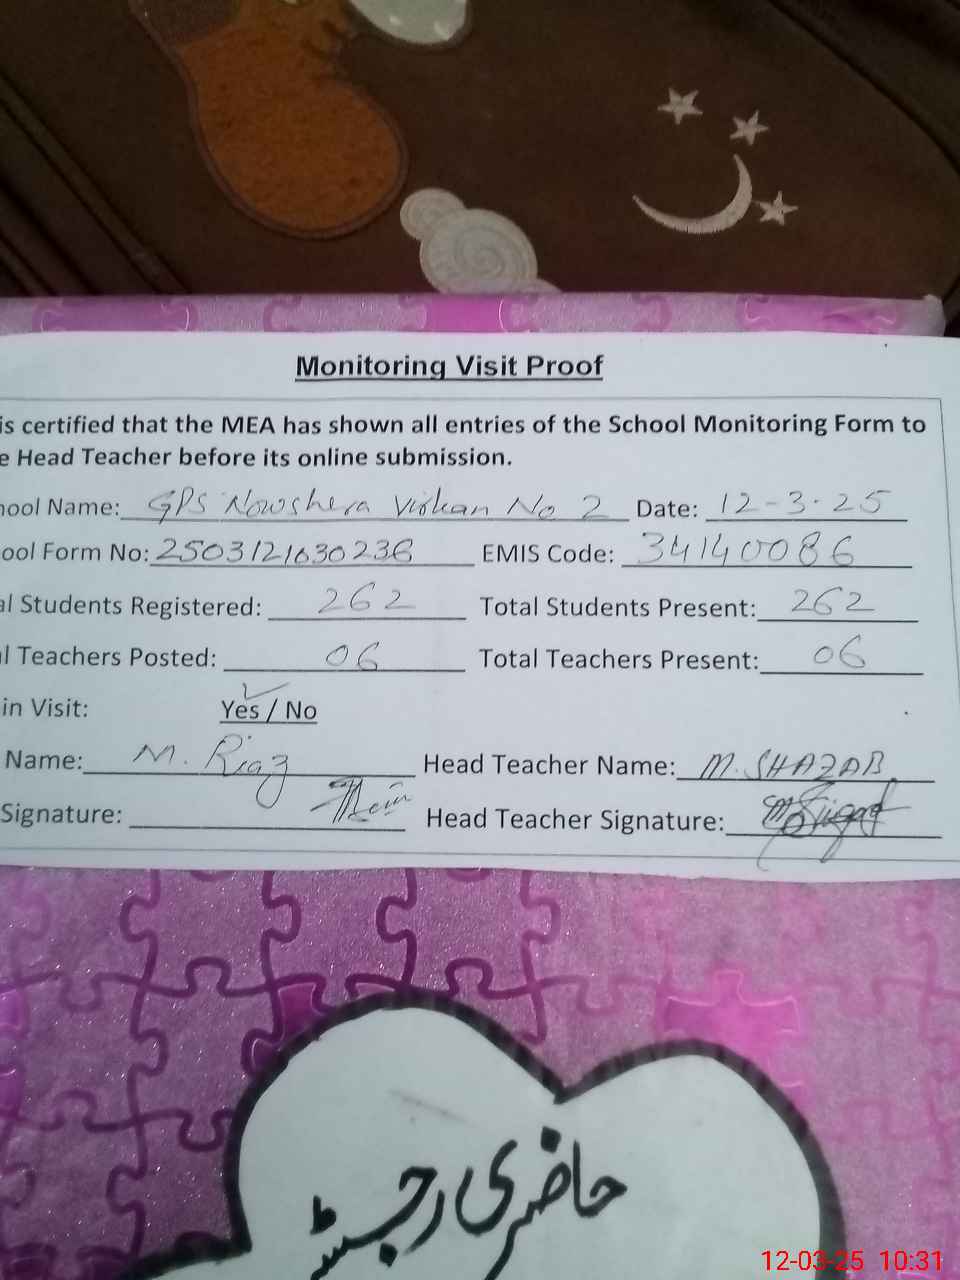 Monitoring Visit Proof
is certified that the MEA has shown all entries of the School Monitoring Form to
e Head Teacher before its online submission.
hool Name: GPS Nowshera Virkan No 2 Date: 12-3-25
ool Form No: 2503121630236 EMIS Code: 34140086
al Students Registered: 262 Total Students Present: 262
l Teachers Posted: 06 Total Teachers Present: 06
in Visit: Yes / No
Name: M. Riaz Head Teacher Name: M. SHAZAB
Signature: Head Teacher Signature:
حاضری رجسٹ
12-03-25 10:31